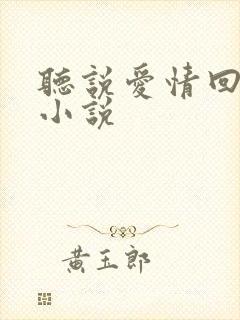 聽說愛情回
小說
黃玉郎